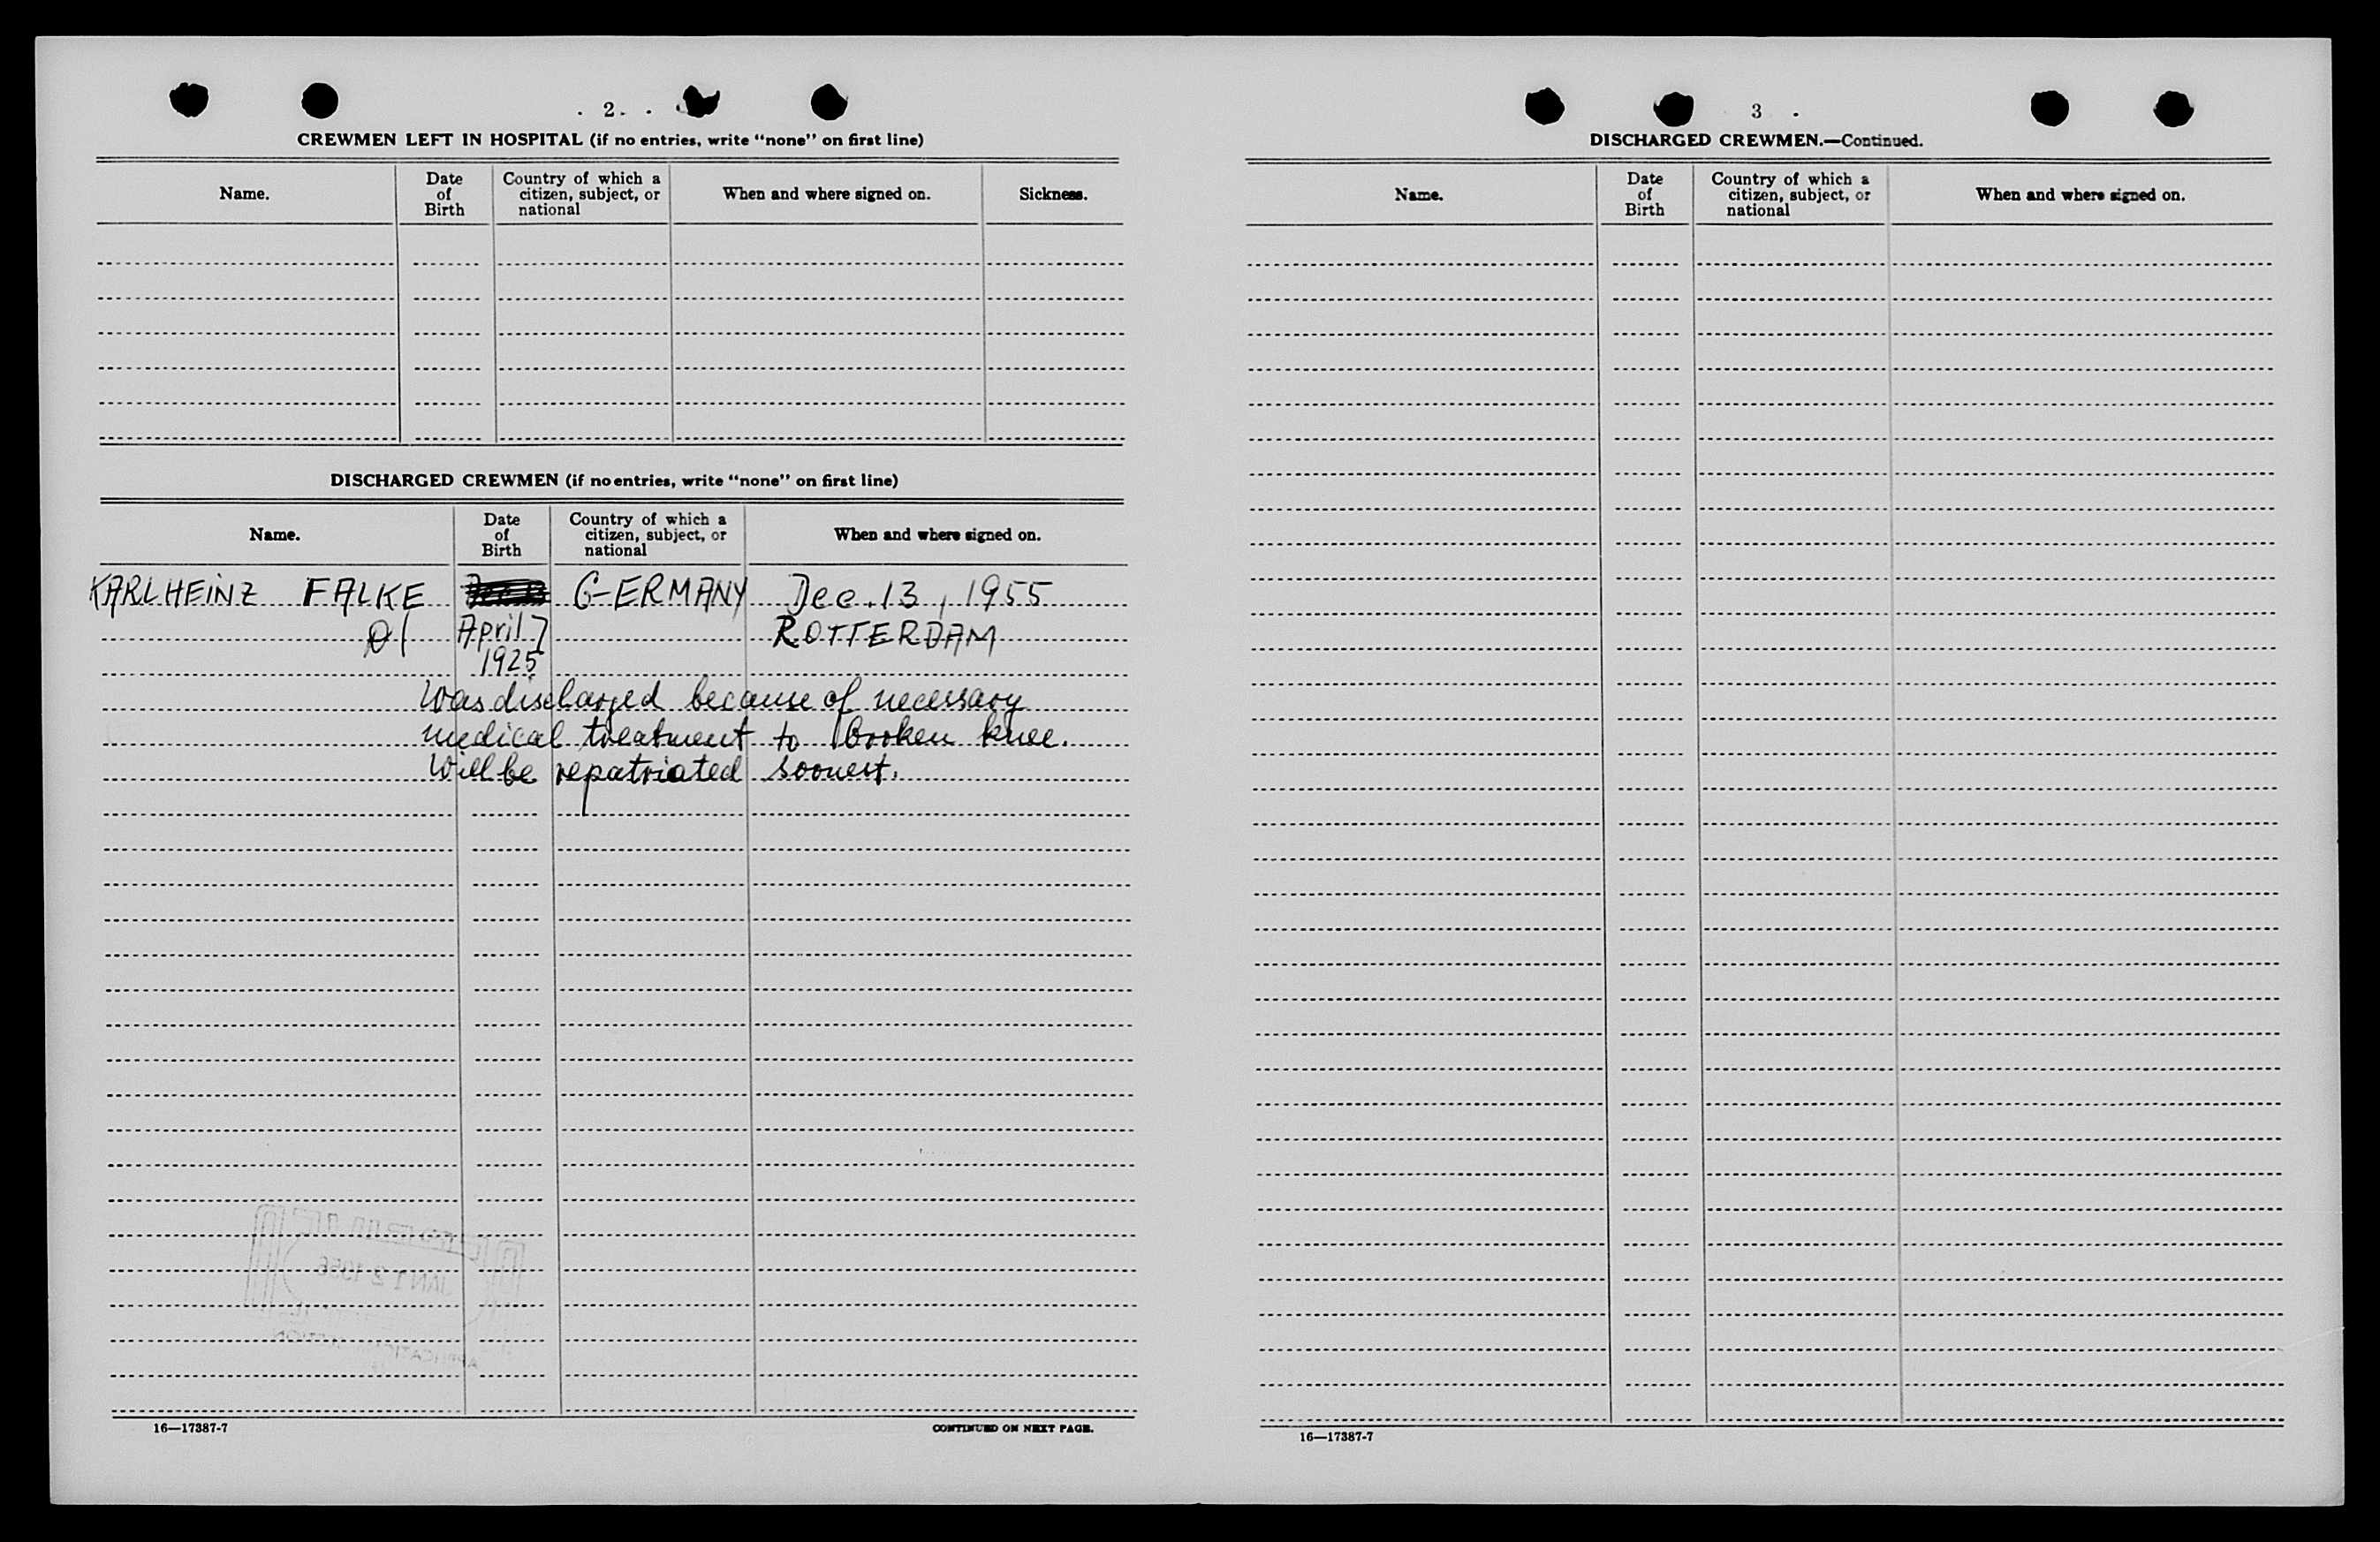 2
CREWMEN LEFT IN HOSPITAL (if no entries, write “none” on first line)
Name.
Date of Birth
Country of which a citizen, subject, or national
When and where signed on.
Sickness.
DISCHARGED CREWMEN (if no entries, write “none” on first line)
Name.
Date of Birth
Country of which a citizen, subject, or national
When and where signed on.
KARLHEINZ FALKE GERMANY Dec. 13, 1955
April 7 ROTTERDAM
1925
Was discharged because of necessary
medical treatment to broken knee.
Will be repatriated soonest.
JAN 12 1956
16—17387-7
CONTINUED ON NEXT PAGE.
3
DISCHARGED CREWMEN.—Continued.
Name.
Date of Birth
Country of which a citizen, subject, or national
When and where signed on.
16—17387-7